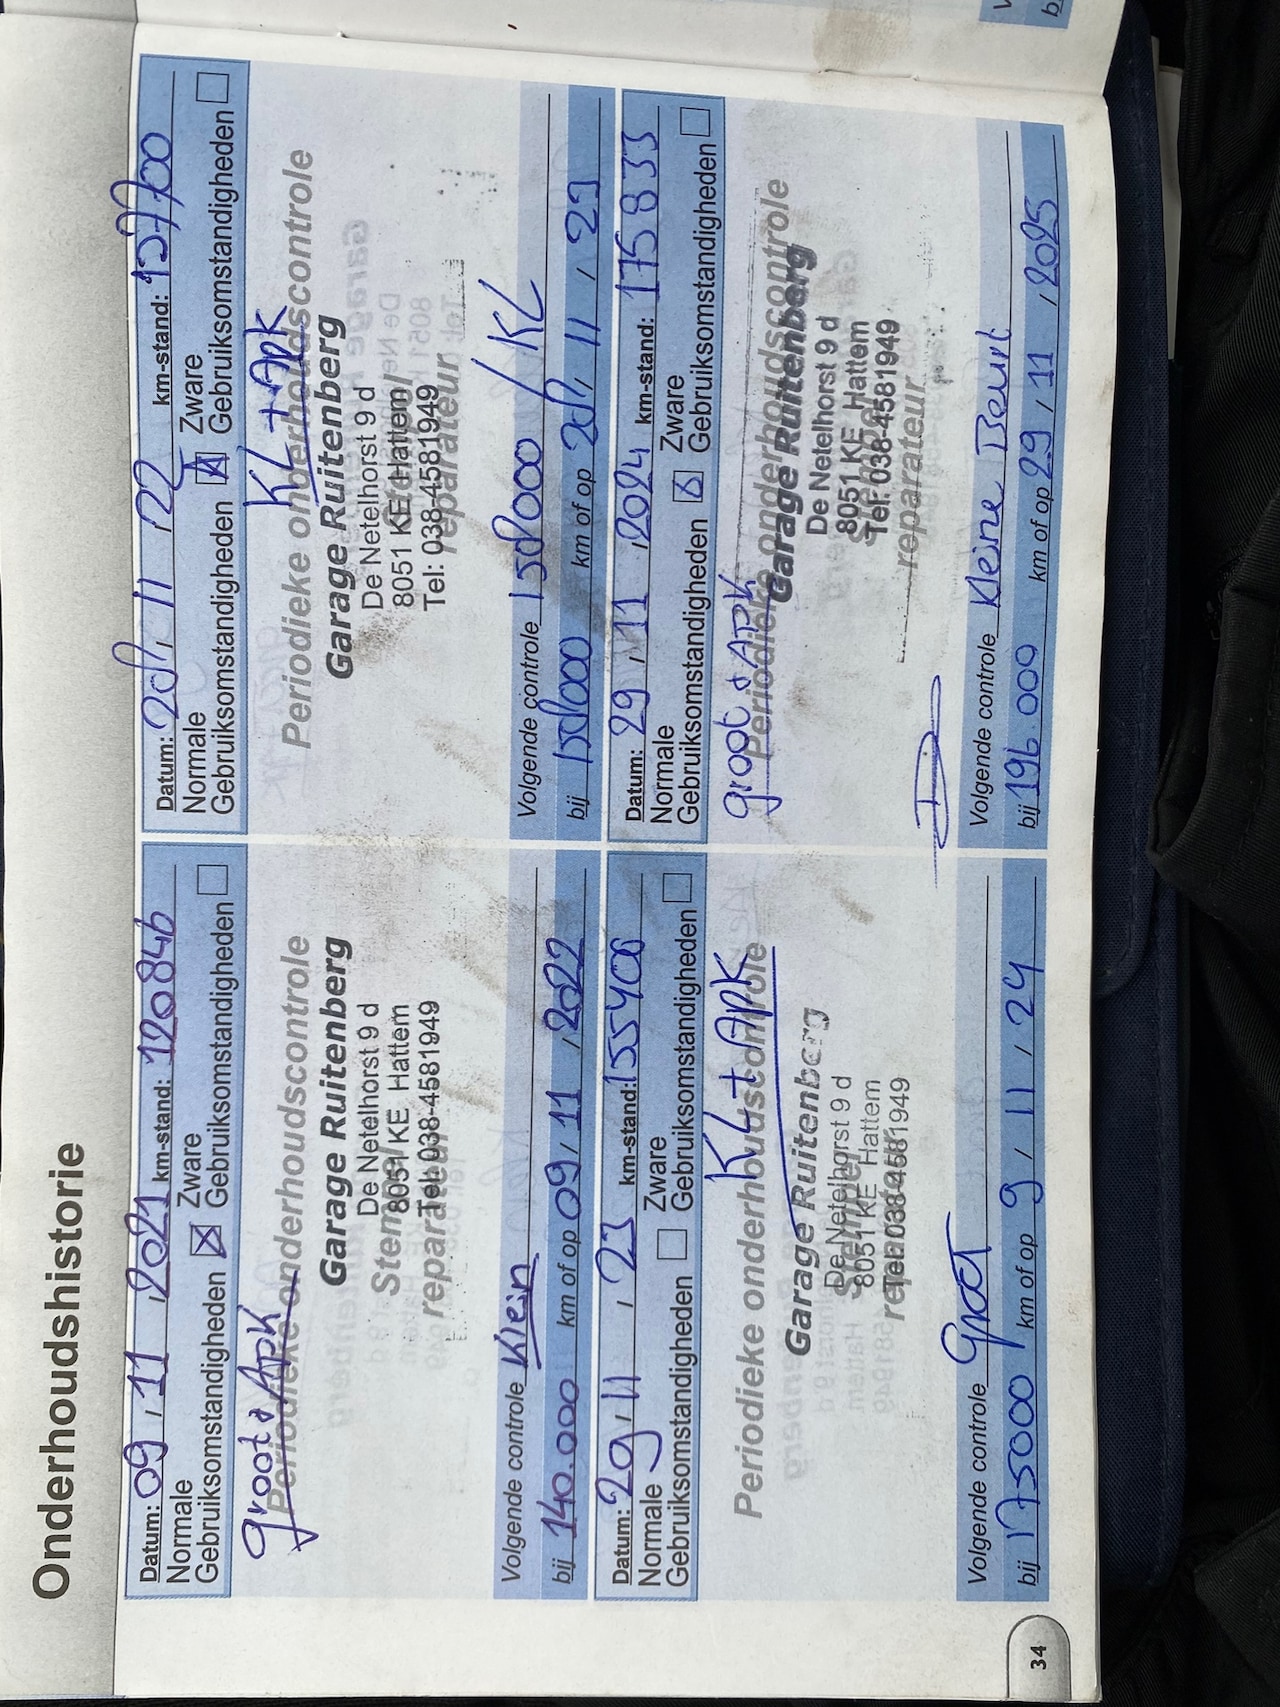 Onderhoudshistorie
Datum: 09 / 11 / 2021 km-stand: 120846
Normale Zware
Gebruiksomstandigheden ☒ Gebruiksomstandigheden ☐
groot + APK
Periodieke onderhoudscontrole
Garage Ruitenberg
De Netelhorst 9 d
8051 KE Hattem
Tel: 038-4581949
Stempel
reparateur
Volgende controle Klein
bij 140.000 km of op 09 / 11 / 2022
Datum: / 11 / 22 km-stand:
Normale Zware
Gebruiksomstandigheden ☒ Gebruiksomstandigheden ☐
KL + APK
Periodieke onderhoudscontrole
Garage Ruitenberg
De Netelhorst 9 d
8051 KE Hattem
Tel: 038-4581949
reparateur
Volgende controle / KL
bij km of op / 11 /
Datum: / 11 / 23 km-stand: 155406
Normale Zware
Gebruiksomstandigheden ☐ Gebruiksomstandigheden ☐
KL + APK
Periodieke onderhoudscontrole
Garage Ruitenberg
De Netelhorst 9 d
8051 KE Hattem
Tel: 038-4581949
Stempel
reparateur
Volgende controle Groot
bij 175000 km of op 9 / 11 / 24
Datum: 29 / 11 / 2024 km-stand: 175833
Normale Zware
Gebruiksomstandigheden ☒ Gebruiksomstandigheden ☐
groot + APK
Periodieke onderhoudscontrole
Garage Ruitenberg
De Netelhorst 9 d
8051 KE Hattem
Tel: 038-4581949
Stempel
reparateur
Volgende controle Kleine Beurt
bij 196.009 km of op 29 / 11 / 2025
34